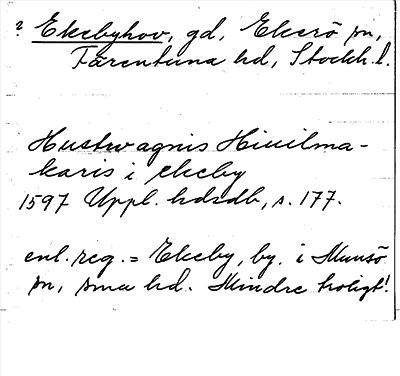 ? Ekebyhov, gd, Ekerö sn,
Färentuna hd, Stockh. l.
Hustrw agnis Hiuilma-
karis i ekeby
1597 Uppl. hdrdb, s. 177.
enl. reg. = Ekeby, by, i Munsö
sn, sma hd. Mindre troligt!